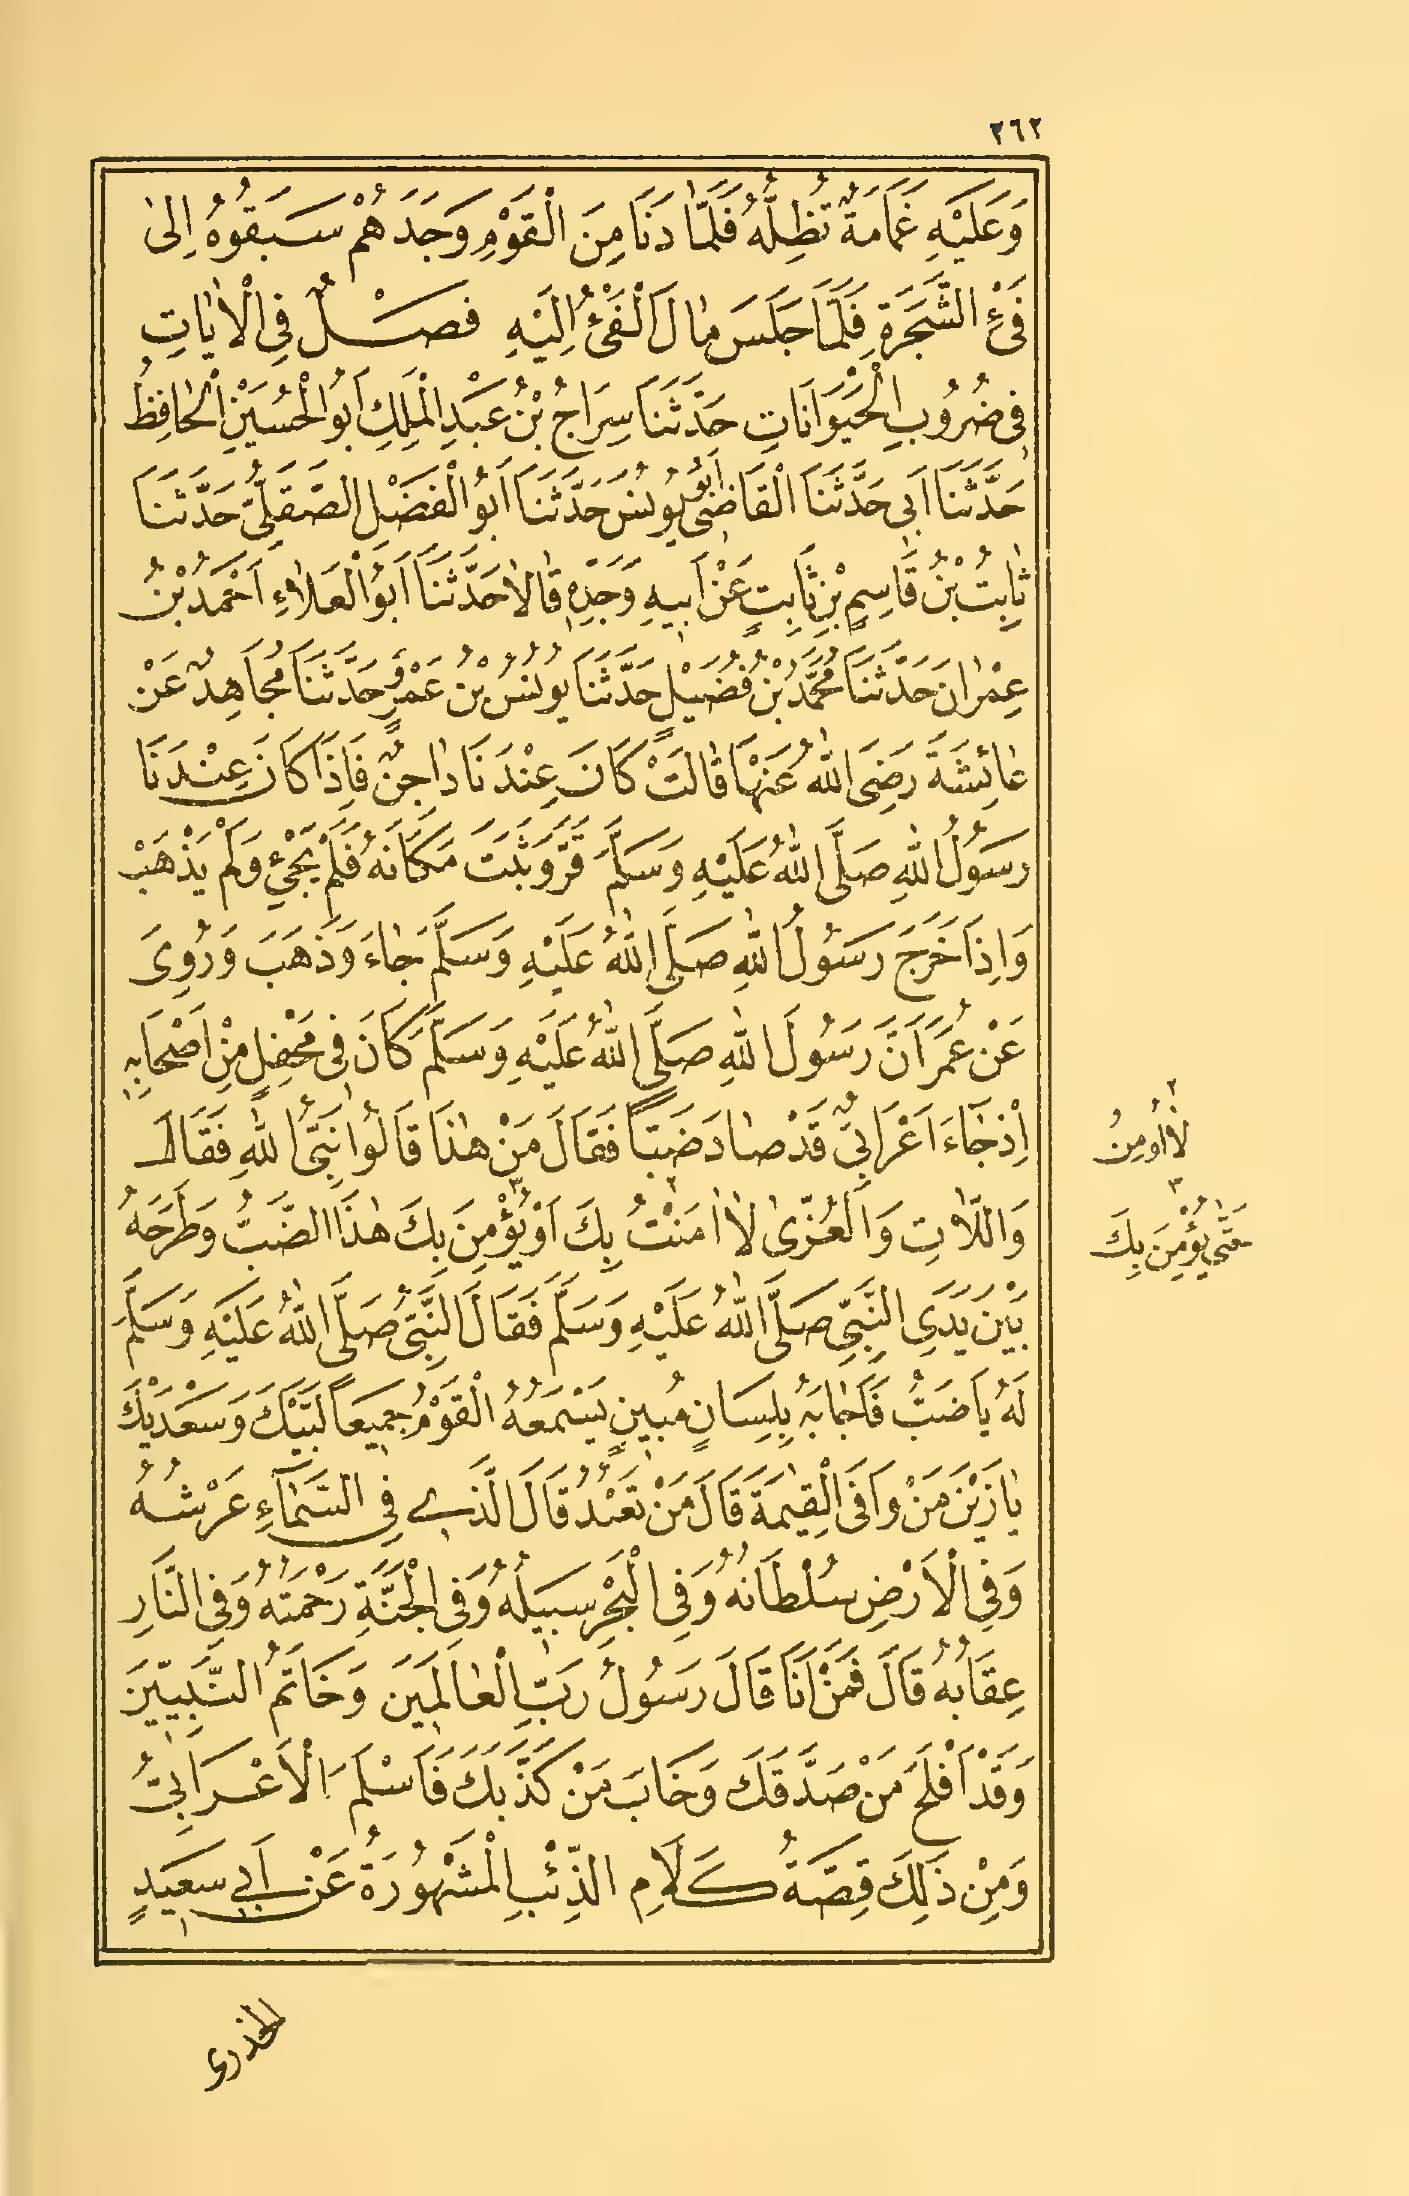 ٢٦٢
وَعَلَيْهِ غَمَامَةٌ تُظِلُّهُ فَلَمَّا دَنَا مِنَ الْقَوْمِ وَجَدَهُمْ سَبَقُوهُ إِلىٰ
فَيْءِ الشَّجَرَةِ فَلَمَّا جَلَسَ مَالَ الْفَيْءُ إِلَيْهِ فَصْلٌ فِي الْاٰيَاتِ
فِي ضُرُوبِ الْحَيَوَانَاتِ حَدَّثَنَا سِرَاجُ بْنُ عَبْدِ الْمَلِكِ أَبُو الْحُسَيْنِ الْحَافِظُ
حَدَّثَنَا أَبِي حَدَّثَنَا الْقَاضِي أَبُو يُونُسَ حَدَّثَنَا أَبُو الْفَضْلِ الصَّقَلِّيُّ حَدَّثَنَا
ثَابِتُ بْنُ قَاسِمِ بْنِ ثَابِتٍ عَنْ أَبِيهِ وَجَدِّهِ قَالَا حَدَّثَنَا أَبُو الْعَلَاءِ أَحْمَدُ بْنُ
عِمْرَانَ حَدَّثَنَا مُحَمَّدُ بْنُ فُضَيْلٍ حَدَّثَنَا يُونُسُ بْنُ عَمْرٍو حَدَّثَنَا مُجَاهِدٌ عَنْ
عَائِشَةَ رَضِيَ اللّٰهُ عَنْهَا قَالَتْ كَانَ عِنْدَنَا دَاجِنٌ فَإِذَا كَانَ عِنْدَنَا
رَسُولُ اللّٰهِ صَلَّى اللّٰهُ عَلَيْهِ وَسَلَّمَ قَرَّ وَثَبَتَ مَكَانَهُ فَلَمْ يَجِئْ وَلَمْ يَذْهَبْ
وَإِذَا خَرَجَ رَسُولُ اللّٰهِ صَلَّى اللّٰهُ عَلَيْهِ وَسَلَّمَ جَاءَ وَذَهَبَ وَرُوِيَ
عَنْ عُمَرَ أَنَّ رَسُولَ اللّٰهِ صَلَّى اللّٰهُ عَلَيْهِ وَسَلَّمَ كَانَ فِي مَحْفِلٍ مِنْ أَصْحَابِهِ
إِذْ جَاءَ أَعْرَابِيٌّ قَدْ صَادَ ضَبًّا فَقَالَ مَنْ هٰذَا قَالُوا نَبِيُّ اللّٰهِ فَقَالَ
وَاللَّاتِ وَالْعُزّٰى لَا اٰمَنْتُ بِكَ أَوْ يُؤْمِنَ بِكَ هٰذَا الضَّبُّ وَطَرَحَهُ
بَيْنَ يَدَيِ النَّبِيِّ صَلَّى اللّٰهُ عَلَيْهِ وَسَلَّمَ فَقَالَ النَّبِيُّ صَلَّى اللّٰهُ عَلَيْهِ وَسَلَّمَ
لَهُ يَا ضَبُّ فَأَجَابَهُ بِلِسَانٍ مُبِينٍ يَسْمَعُهُ الْقَوْمُ جَمِيعًا لَبَّيْكَ وَسَعْدَيْكَ
يَا زَيْنَ مَنْ وَافَى الْقِيٰمَةَ قَالَ مَنْ تَعْبُدُ قَالَ الَّذِي فِي السَّمَاءِ عَرْشُهُ
وَفِي الْأَرْضِ سُلْطَانُهُ وَفِي الْبَحْرِ سَبِيلُهُ وَفِي الْجَنَّةِ رَحْمَتُهُ وَفِي النَّارِ
عِقَابُهُ قَالَ فَمَنْ أَنَا قَالَ رَسُولُ رَبِّ الْعَالَمِينَ وَخَاتَمُ النَّبِيِّينَ
وَقَدْ أَفْلَحَ مَنْ صَدَّقَكَ وَخَابَ مَنْ كَذَّبَكَ فَأَسْلَمَ الْأَعْرَابِيُّ
وَمِنْ ذٰلِكَ قِصَّةُ كَلَامِ الذِّئْبِ الْمَشْهُورَةُ عَنْ أَبِي سَعِيدٍ
٢
لَا أُومِنُ
٣
حَتّٰى يُؤْمِنَ بِكَ
الخدرى